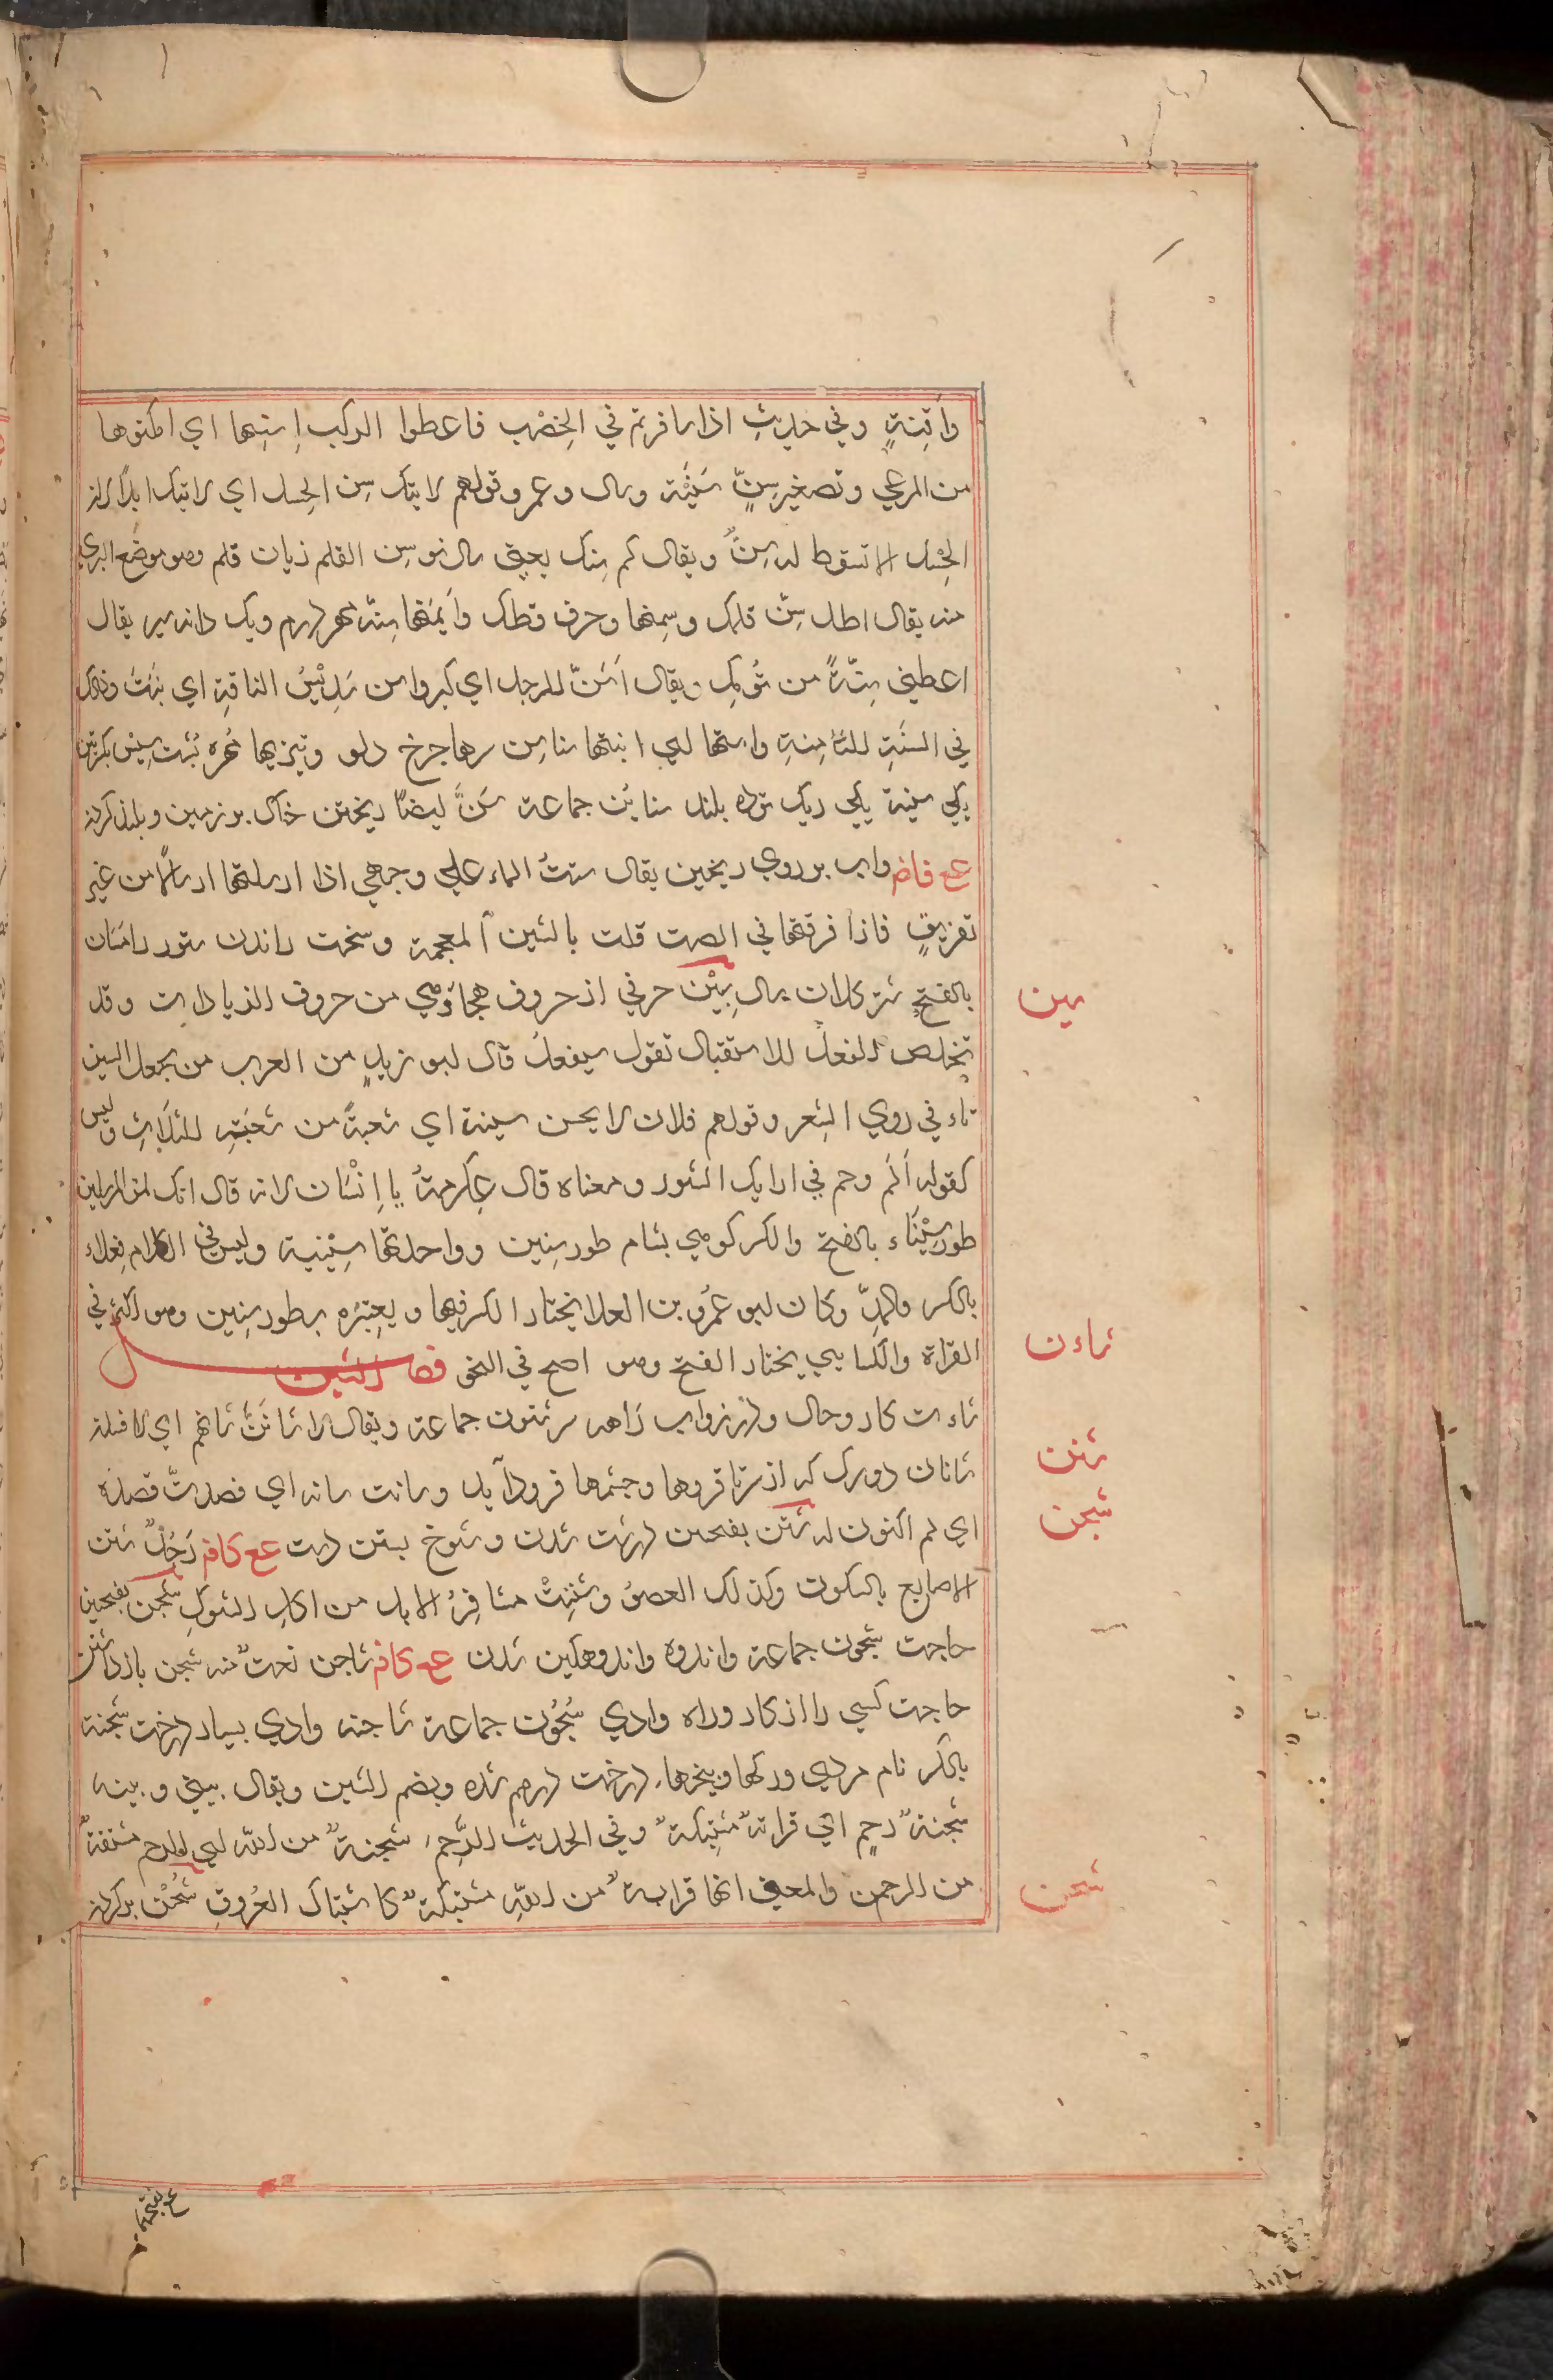 وأقنةٍ وفي حديثِ اذا سافرتم في الخِصْبِ فاعطوا الركب اسنتها اي امكنوها
من المرعي وتصغير سِنٍّ سُنَيْنَة وسال وعمر وقولهم لا اتيك سِن الحِسل اي لا اتيك ابدًا لان
الحِسْل لا تسقط له سِنٌّ ويقال كم سِنك يعني سال تو سِن القلم زبان قلم وهو موضع البري
منه يقال اطل سِنّ قلمك وسمنها وحرف قطك وأيمنها سِنّة مهر درم ويك دانه سير يقال
اعطني سِنّةً من ثُومك ويقال أسَنّ للرجل اي كبر واسن سَدِيْسُ الناقةِ اي نبَتَ وذلك
في السنَةِ الثامنةِ واسنها الله انبتها سناسِن سرها چرخ دلو وتيزيها
يكي سنسنة يكي ريك توده بلند سنائن جماعة سَنّ ايضًا ريختن خاك بر زمين وبلند كردن
ع فاض واب بر روي ريختن يقال سننتُ الماء علي وجهي اذا ارسلتها ارسالًا من غير
تفريقٍ فاذا فرقتها في الصب قلت بالشين المعجمة وسخت راندن ستور را سَنان
بالفتح شتر كلان سال سِيْن حرفي از حروف هجا وهي من حروف الزيادات وقد
تخلص الفعل للاستقبال تقول سيفعلُ قال ابو زيدٍ من العرب من يجعل السين
تاء في روي الشعر وقولهم فلان لا يحسن سينة اي شعبةً من شعَبَهِ الثلاثِ وليس
كقوله ألم وحم في اوايل السُّور ومعناه قال عِكرمةُ يا إنْسَان لانه قال انك لمن المرسلين
طورسَيْنَاء بالفتح والكسر كوهي بشام طور سِنين وواحدتها سِيْنينة وليس في الكلام فِعلاء
بالكسر والمدّ وكان ابو عَمْرو بن العلا يختار الكسر فيها ويعتبره بطور سِنِين وهو اكثر في
القراة والكسايي يختار الفتح وهو اصح في النحو فصل الشين
شاءن كار وحال ودرز واب راهه سر شئون جماعة ويقال لا شاَنَنَّ شاْنهم اي لافسدنه
شانان دو رك كه از سرتا قروها وچشمها فرود آيد وشانت شانه اي قصدتُ قصده
اي لم اكنون له شَثن بفتحتين درشت شدن وشوخ بستن دست ع كافه رَجُلٌ شثن
الاصابع بالسكون وكذلك العضوُ وشثِنتْ مشافِرُ الابل من اكلِ الشوكِ شَجن بفتحتين
حاجت شجون جماعة واندوه واندوهكين شدن ع كافه شاجن نعتٌ منه شجن بازداشتن
حاجت كسي را از كار وراه وادي شُجُون جماعة شاجنه وادي بسيار درخت شجنة
بالكسر نام مردي وركها وبيخها درخت درهم شده وبضم الشين ويقال بيني وبينه
شجنةُ رحمٍ اي قرابةٌ مشتبكةٌ وفي الحديث الرَّحِمُ شجنةٌ من الله اي الرحم مشتقةٌ
من الرحمن والمعني انها قرابة من اللهِ مشتبكةٌ كاشتباك العُروقِ شَحْن بر كردن
سين
شاءن
شثن
شجن
شحن